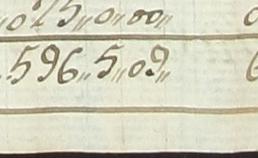 015〃0〃00〃
596〃5〃09〃